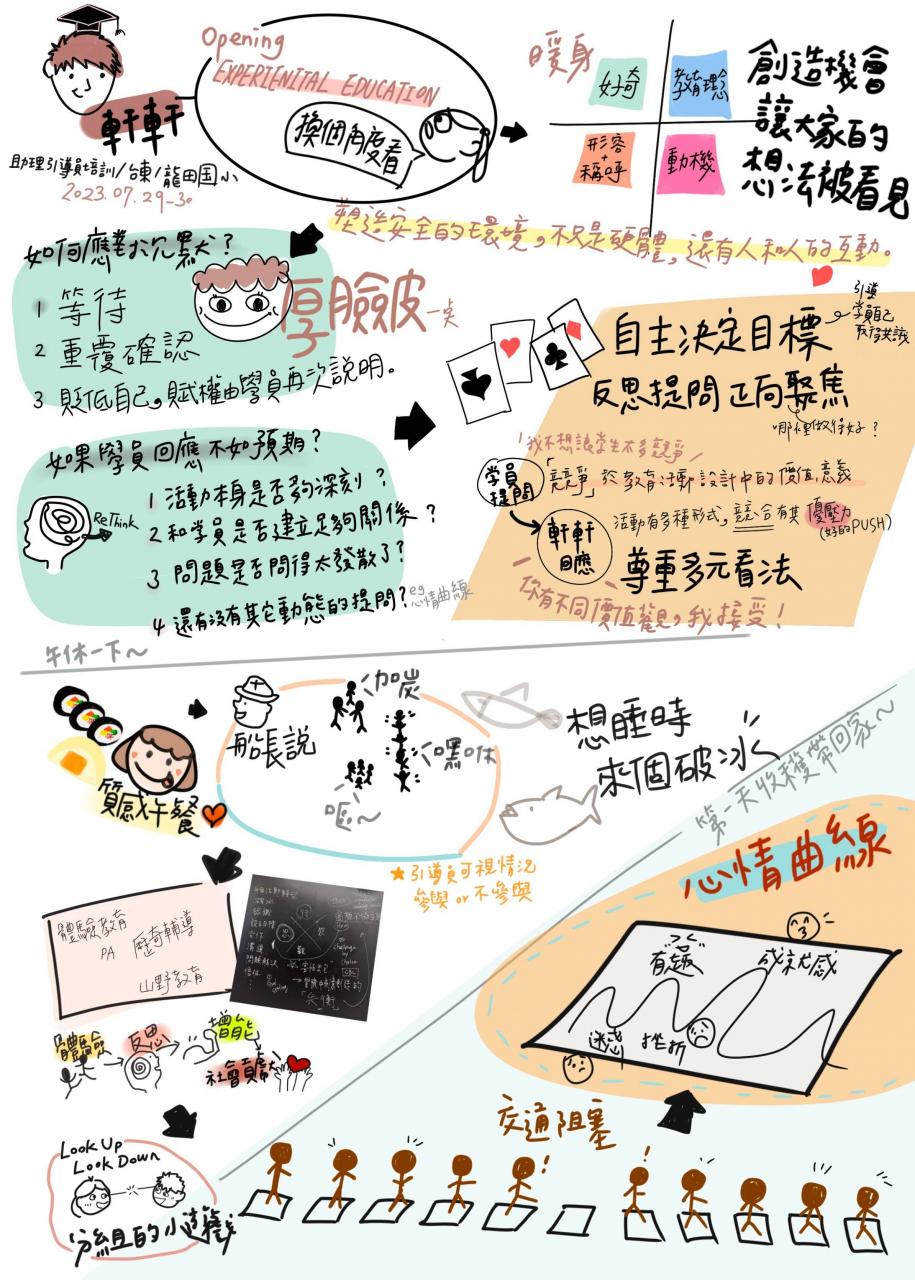 Opening
EXPERIENITAL EDUCATION
換個角度看
軒軒
助理引導員培訓/台東/龍田国小
2023.07.29-30
暖身
好奇
教育理念
形容
+
稱呼
動機
創造機會
讓大家的
想法被看見
塑造安全的環境,不只是硬體,還有人和人的互動。
如何應對沉默?
1 等待
2 重覆確認
3 貶低自己,賦權由學員再次說明。
厚臉皮一点
自主決定目標
引導
學員自己
取得共識
反思提問 正向聚焦
哪裡做得好?
如果學員回應不如預期?
ReThink
1 活動本身是否夠深刻?
2 和學員是否建立足夠關係?
3 問題是否問得太發散了?
4 還有沒有其它動態的提問?
e.g. 心情曲線
我不想讓學生太多競爭
學員
提問
「競爭」於教育活動設計中的價值意義
軒軒
回應
活動有多種形式,競合有其優壓力
(好的PUSH)
尊重多元看法
你有不同價值觀,我接受!
午休一下~
質感午餐
船長說
加炭
嘿咻
嘔~
想睡時
來個破冰
★引導員可視情況
參與 or 不參與
體驗教育
PA 歷奇輔導
山野教育
體驗
反思
增能
社會貢獻
Look Up
Look Down
分組的小遊戲
交通阻塞
第一天收穫帶回家~
心情曲線
有趣
成就感
迷惑
挫折